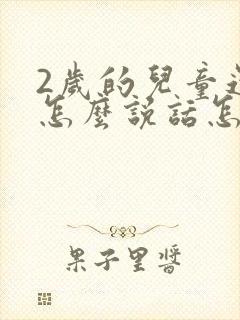 2歲的兒童
怎麼說話怎
果子里醬